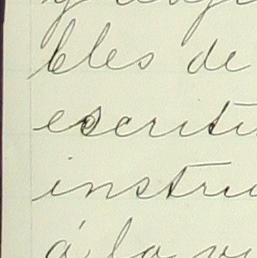 y
bles de
escritu
instru
á la vi